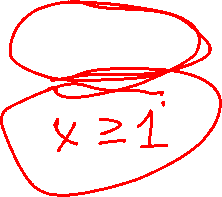 x ≥ 1